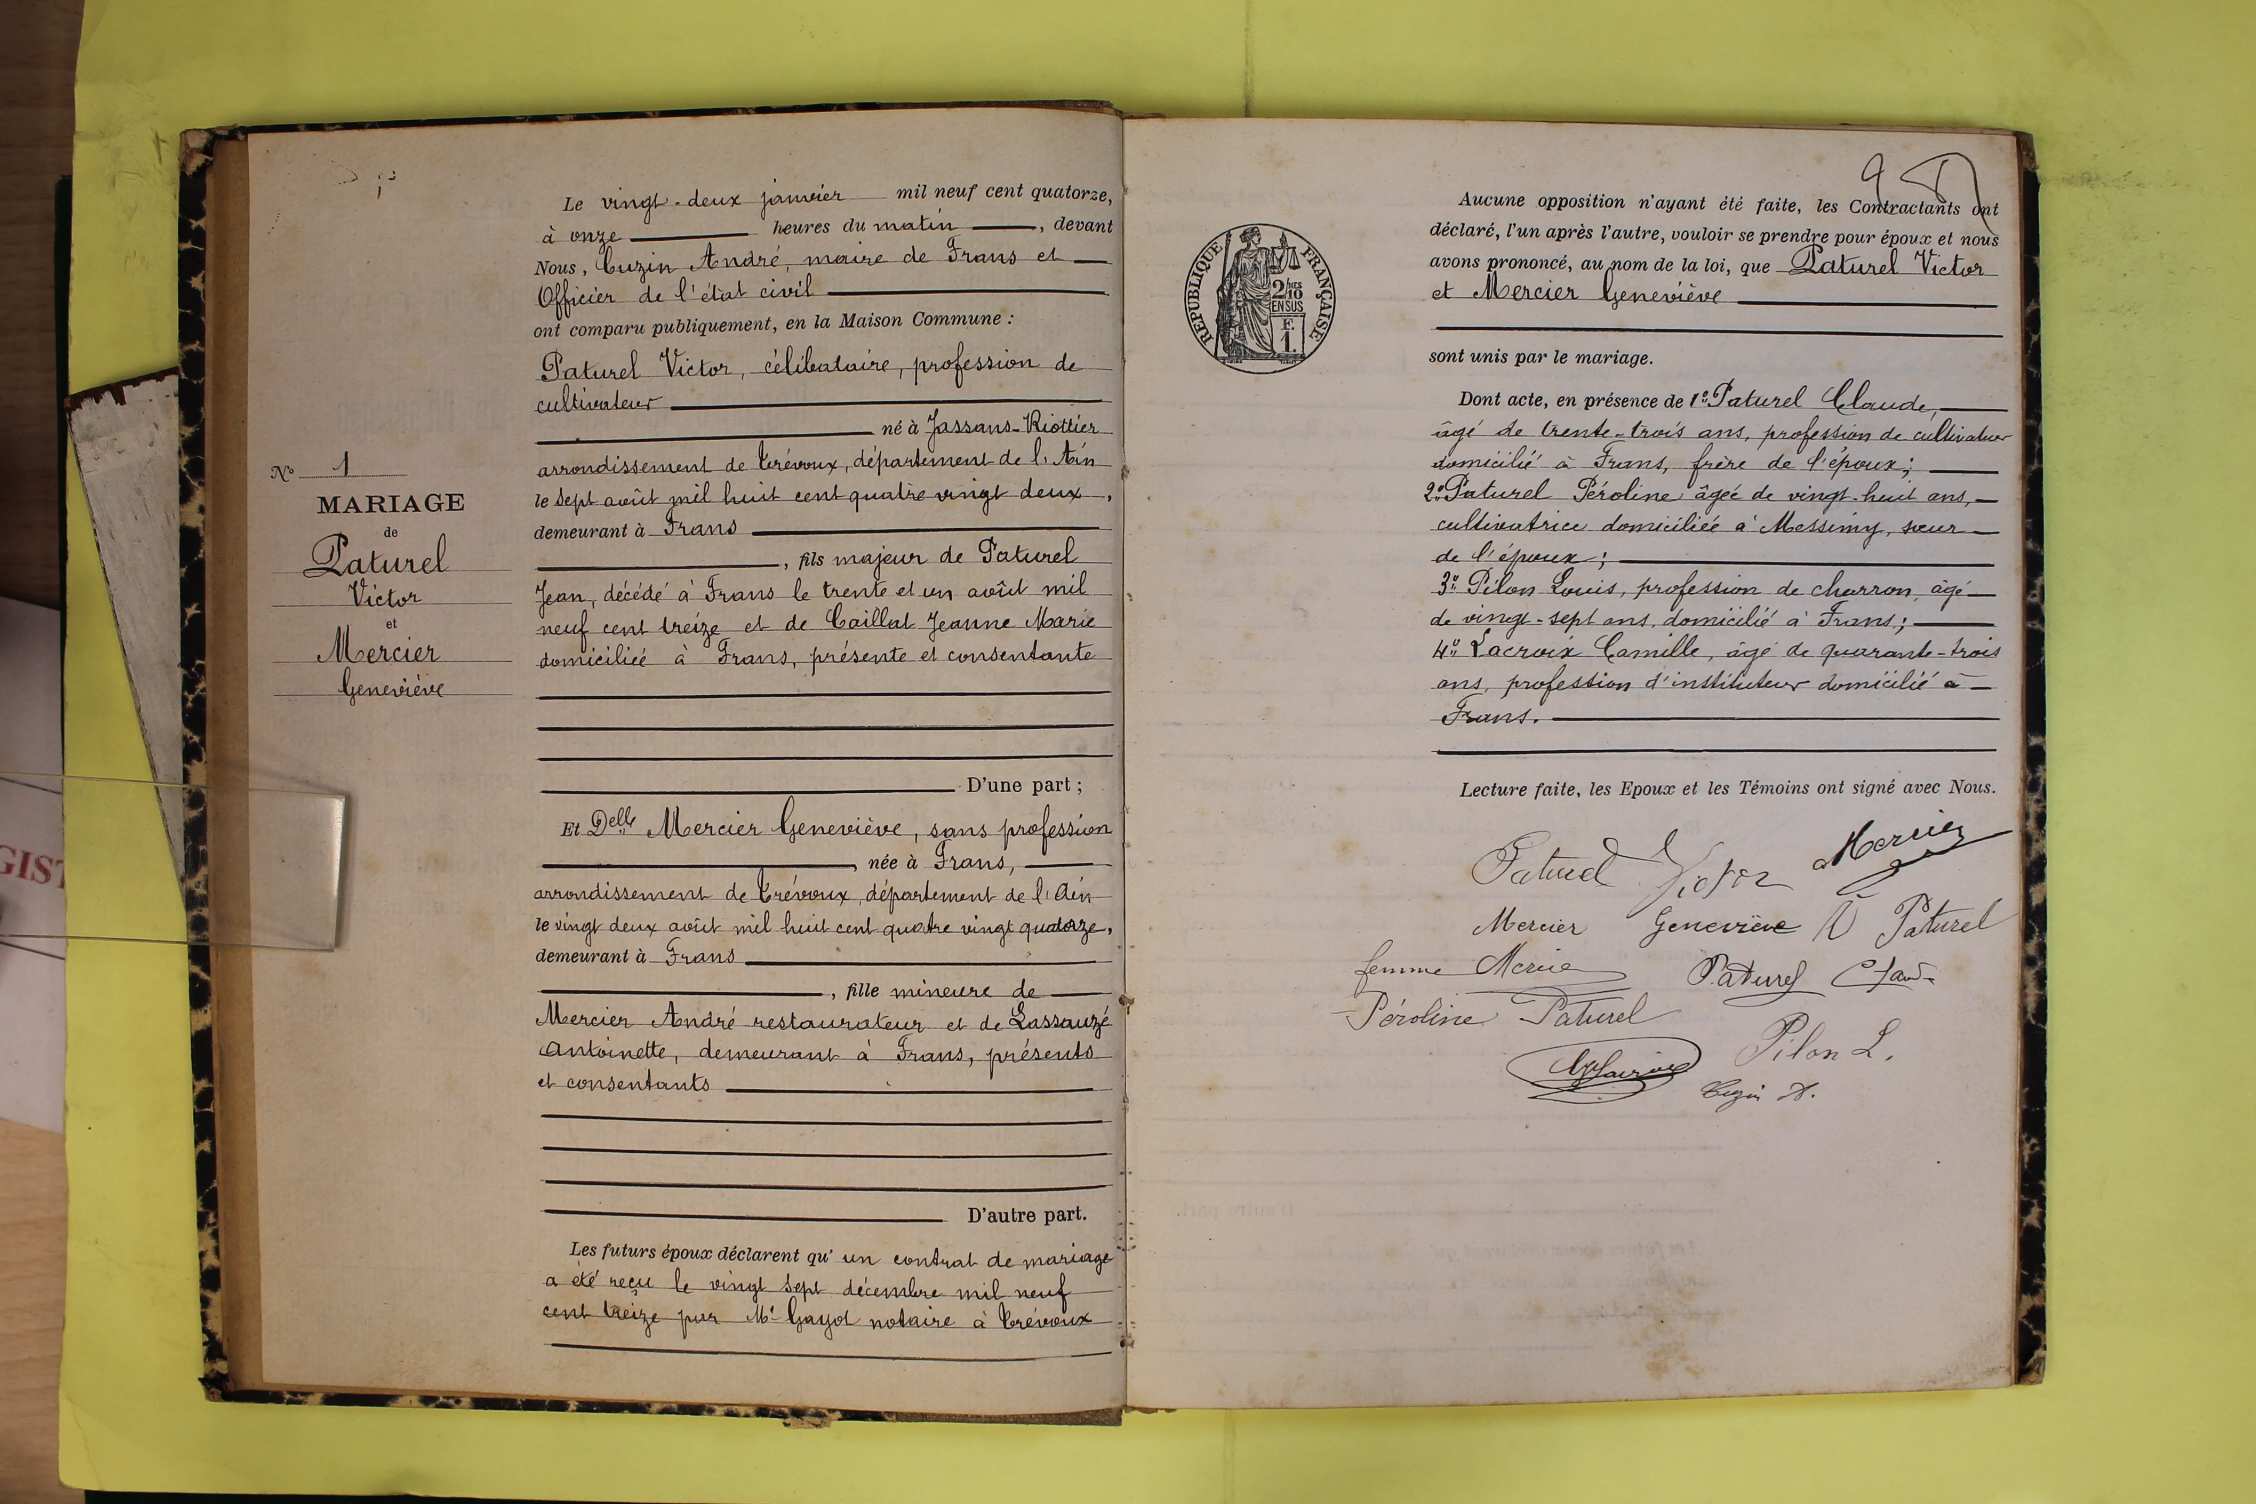 Le vingt-deux janvier mil neuf cent quatorze,
à onze heures du matin, devant
Nous, Cuzin André, maire de Frans et
Officier de l'état civil
ont comparu publiquement, en la Maison Commune :
Paturel Victor, célibataire, profession de
cultivateur
né à Jassans-Riottier
arrondissement de Trévoux, département de l'Ain
le sept août mil huit cent quatre vingt deux,
demeurant à Frans
, fils majeur de Paturel
Jean, décédé à Frans le trente et un août mil
neuf cent treize et de Caillat Jeanne Marie
domiciliée à Frans, présente et consentante
D'une part ;
Et Delle Mercier Geneviève, sans profession
, née à Frans,
arrondissement de Trévoux, département de l'Ain
le vingt deux août mil huit cent quatre vingt quatorze,
demeurant à Frans
, fille mineure de
Mercier André restaurateur et de Lassauzé
Antoinette, demeurant à Frans, présents
et consentants
D'autre part.
Les futurs époux déclarent qu'un contrat de mariage
a été reçu le vingt sept décembre mil neuf
cent treize par Me Gayot notaire à Trévoux
No 1
MARIAGE
de
Paturel
Victor
et
Mercier
Geneviève
GIST
RÉPUBLIQUE FRANÇAISE
2 10mes
EN SUS
F.
1.
Aucune opposition n'ayant été faite, les Contractants ont
déclaré, l'un après l'autre, vouloir se prendre pour époux et nous
avons prononcé, au nom de la loi, que Paturel Victor
et Mercier Geneviève
sont unis par le mariage.
Dont acte, en présence de 1o Paturel Claude,
âgé de trente-trois ans, profession de cultivateur
domicilié à Frans, frère de l'époux ;
2o Paturel Péroline âgée de vingt-huit ans,
cultivatrice domiciliée à Messimy, sœur
de l'époux ;
3o Pilon Louis, profession de charron, âgé
de vingt-sept ans, domicilié à Frans ;
4o Lacroix Camille, âgé de quarante-trois
ans, profession d'instituteur domicilié à
Frans.
Lecture faite, les Epoux et les Témoins ont signé avec Nous.
Paturel Victor Mercier
Mercier Geneviève Vve Paturel
femme Mercier Paturel Claude
Péroline Paturel
Pilon L.
Lacroix
Cuzin A.